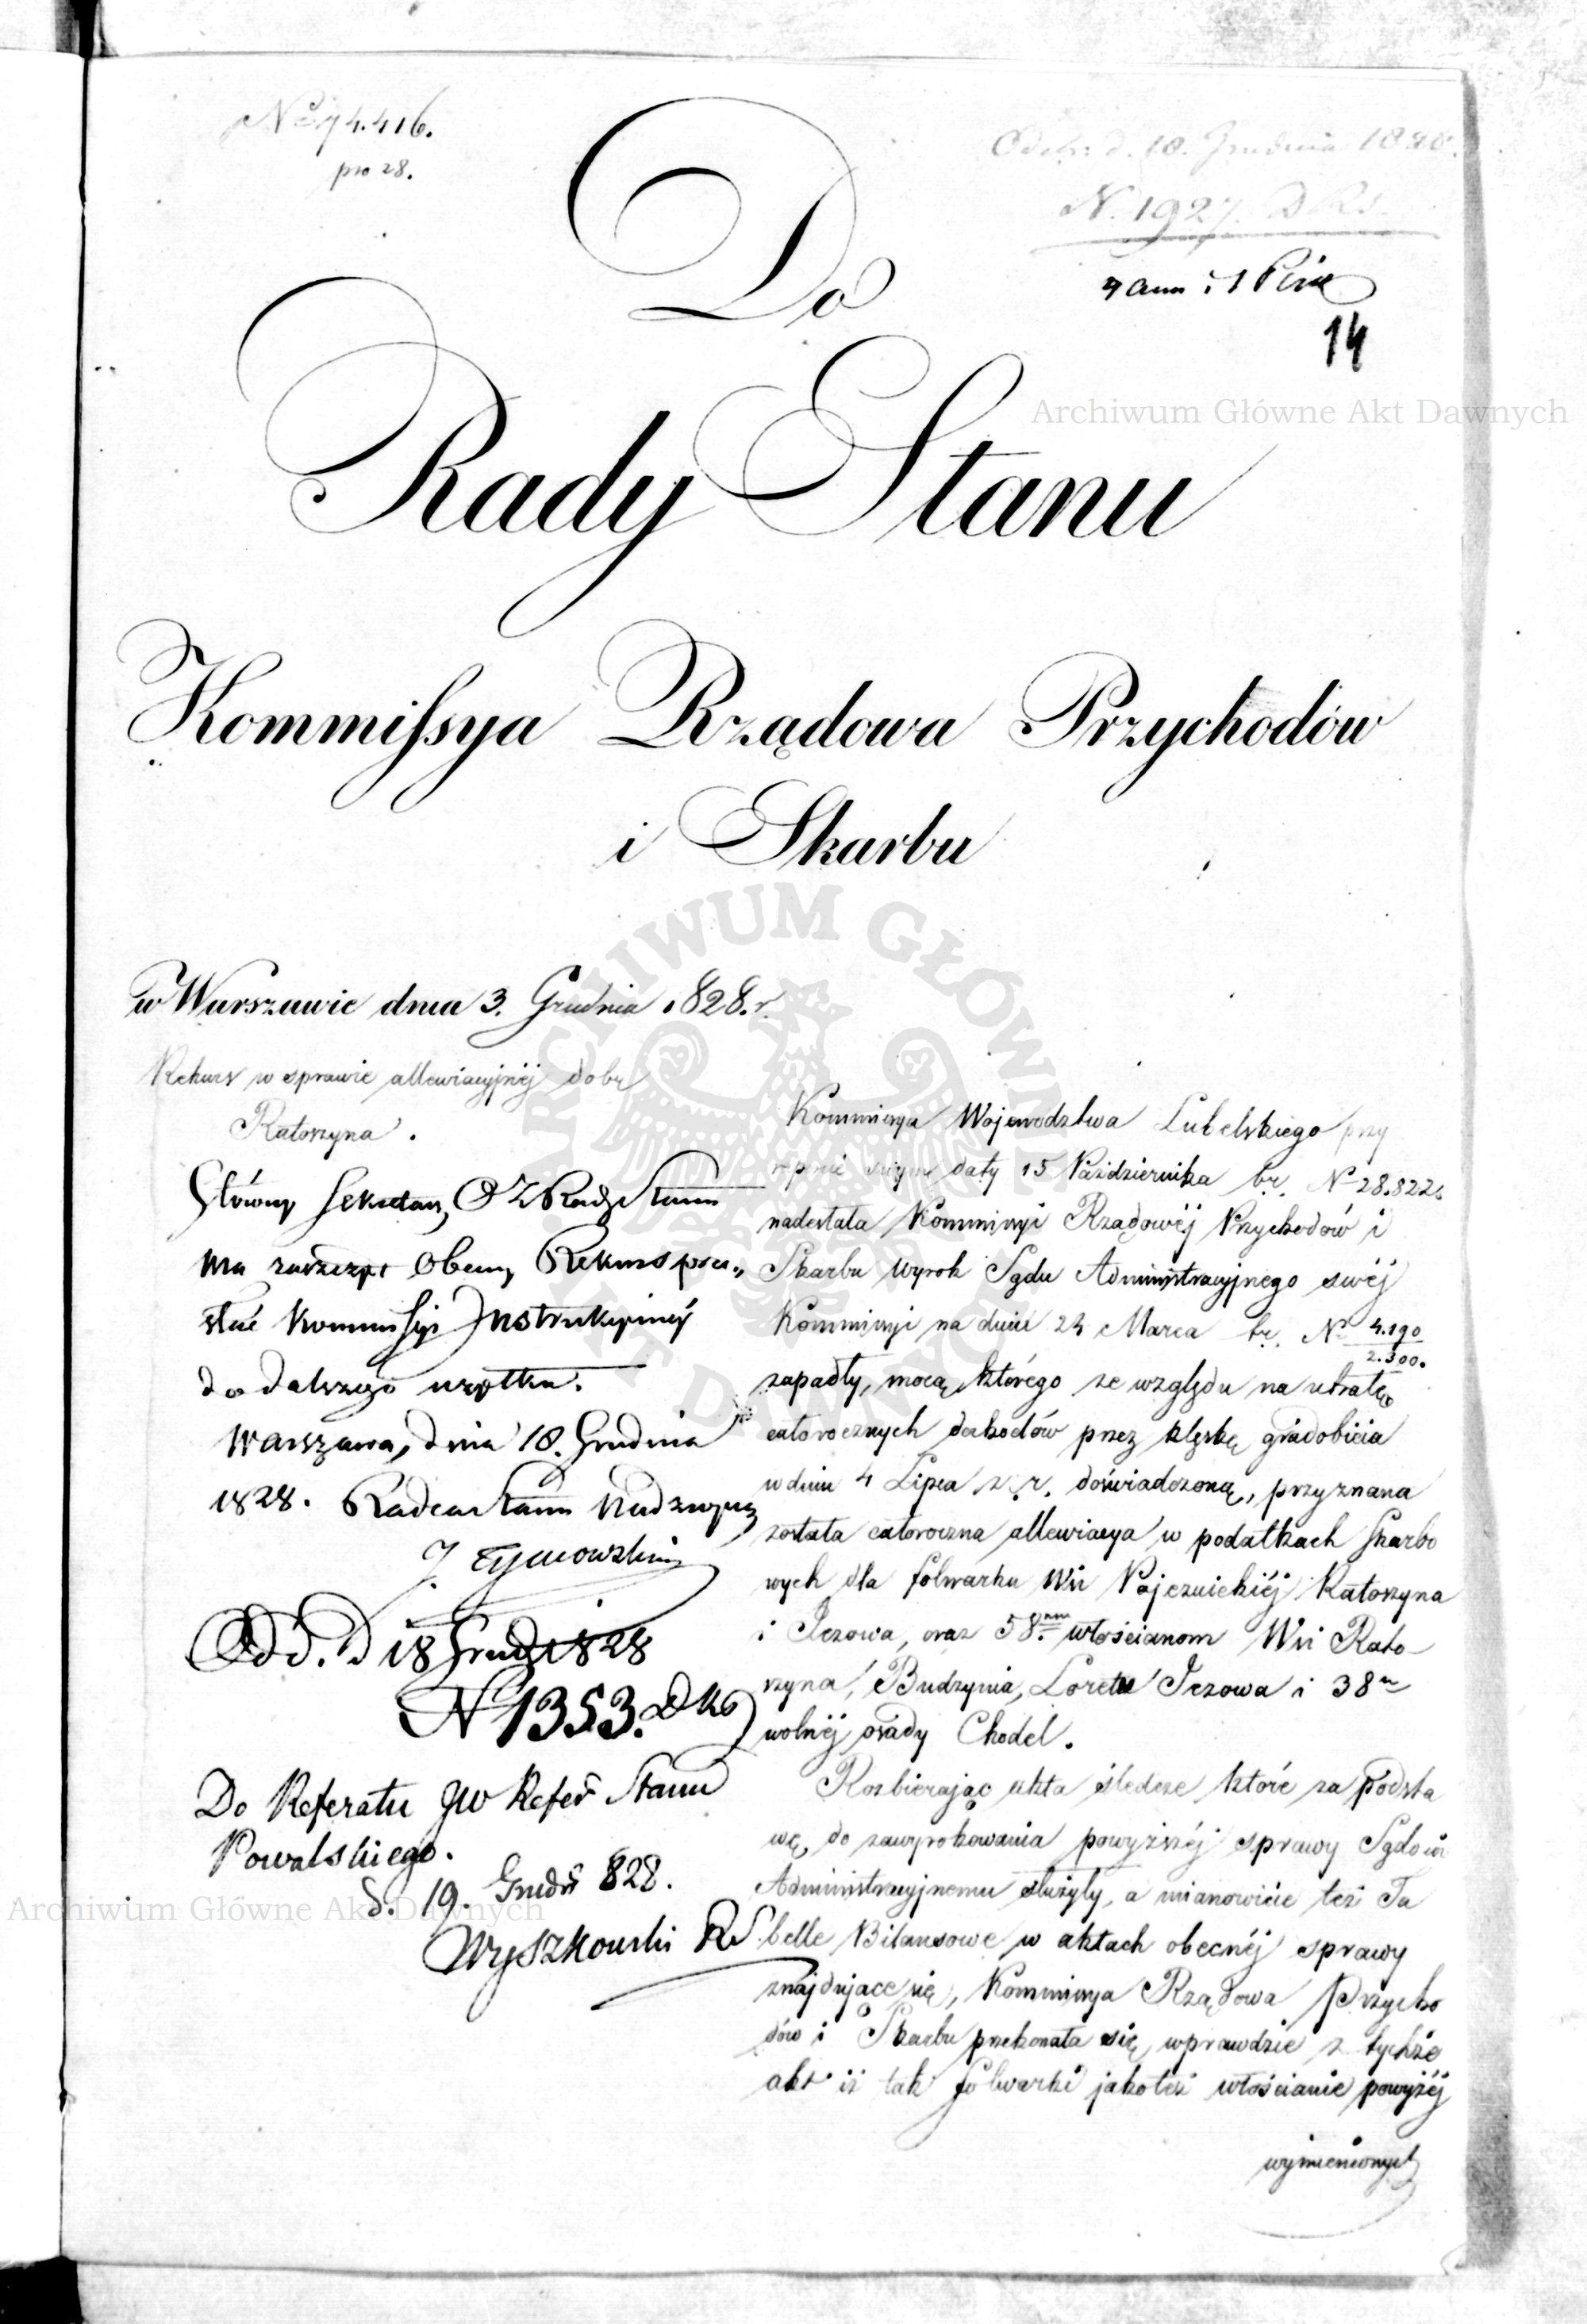 No 74.416.
pro 28.
Odeb: d. 18. Grudnia 1828.
N. 1927. D Rs.
4 ann : 1
14
Archiwum Główne Akt Dawnych
Do
Rady Stanu
Kommissya Rządowa Przychodów
i Skarbu
ARCHIWUM GŁÓWNE AKT DAWNYCH
w Warszawie dnia 3. Grudnia 1828. r.
Rekurs w sprawie allewiacyjnéj dóbr
Ratoszyna.
Główny Sekretarz Rady Stanu
ma zaszczyt obecny Rekurs prze„
słać Kommissyi Instrukcyinéy
do dalszego użytku.
Warszawa, dnia 18. Grudnia
1828. Radca Stanu Nadzwyczaj
J. Tymowski
Odd. D 18 Grud 1828
N 1353. D Ks
Do Referatu JW Refer Stanu
Kowalskiego.
d. 19. Grudń 828.
Wyszkowski RS
Kommissya Województwa Lubelskiego przy
rapocie swym daty 15 Października br. No 28.822.
nadesłała Kommissyi Rządowéj Przychodów i
Skarbu Wyrok Sądu Administracyjnego swéj
Kommissyi na dniu 24 Marca br. No 4.190
2.300.
zapadły, mocą którego ze względu na utratę
całorocznych dochodów przez klęskę gradobicia
w dniu 4 Lipca z. r. doświadczoną, przyznana
została całoroczna allewiacya w podatkach Skarbo
wych dla folwarku Wsi Ratoszyna
i Jeżowa, oraz 58. włościanom Wsi Rato
szyna, Budzynia, Loretu Jeżowa i 38m
wolnéj osady Chodel.
Rozbierając akta śledcze które za podsta
wę do zawyrokowania powyższéj sprawy Sądowi
Administracyjnemu służyły, a mianowicie też Ta
belle Bilansowe w aktach obecnéj sprawy
znajdujace się, Kommissya Rządowa Przycho
dów i Skarbu przekonała się wprawdzie z tychże
akt iż tak folwarki jakoteż włościanie powyżéj
wymienionych
Archiwum Główne Akt Dawnych